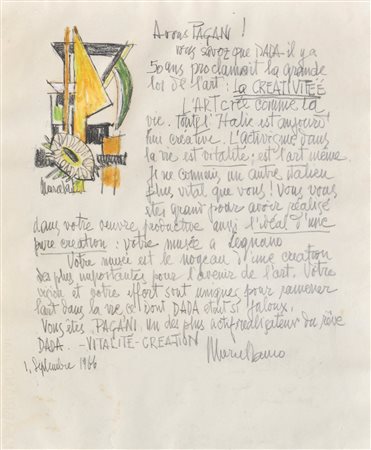 A vous PAGANI !
vous savez que DADA - il y a
50 ans proclamait la grande
loi de l'art : La CREATIVITÉE
L'ART CRÉE comme la
vie. toute l'Italie est aujourd
hui créative. L'activisme dans
la vie est vitalité : est l'art meme.
Je ne connais un autre italien
plus vital que vous ! Vous vous
êtes grand pour avoir réalisé
dans votre oeuvre productive aussi l'idéal d'une
pure creation : votre musée a Legnano
Votre musée est le : une creation
des plus importantes pour l'avenir de l'art. Votre
vision et votre effort sont uniques pour ramener
l'art dans la vie ce dont DADA etait si jaloux.
Vous êtes, PAGANI, un des plus actifs du rêve
DADA. - VITALITÉ - CREATION
1, Septembre 1966